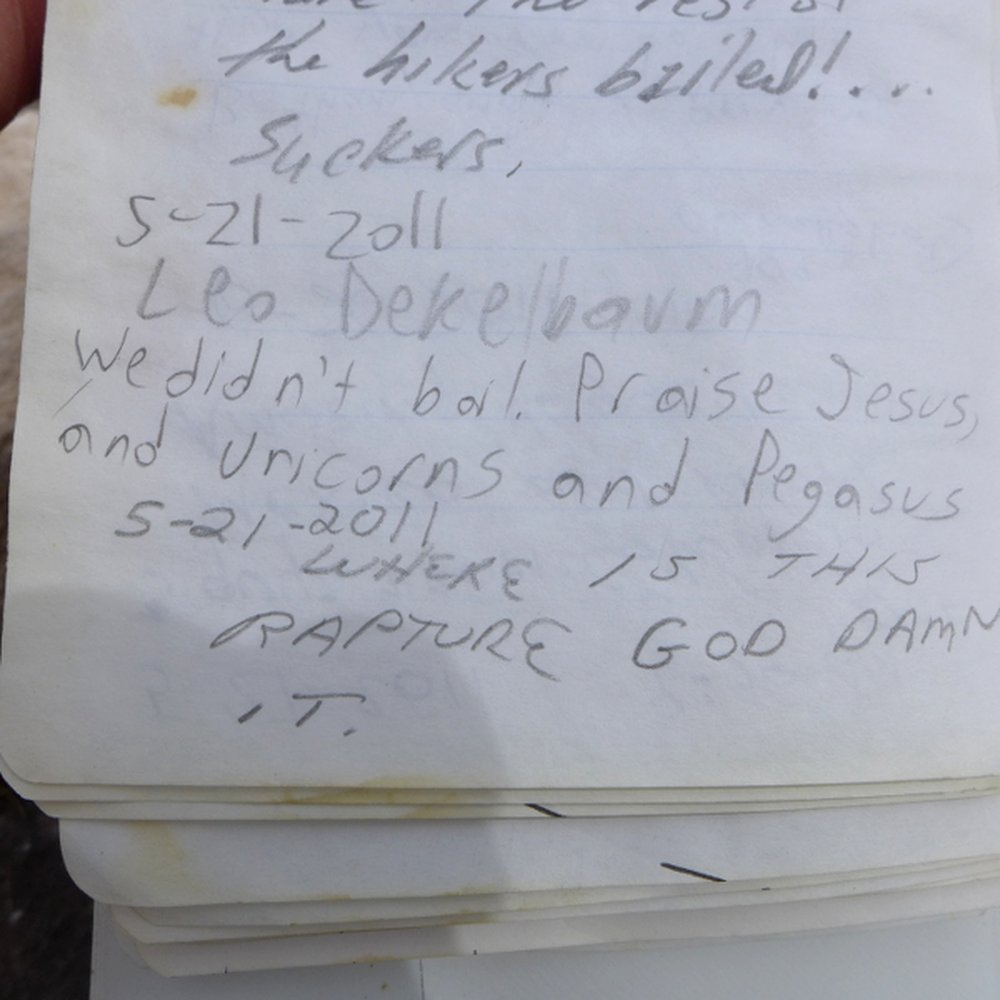 The rest of
the hikers bailed!....
Suckers,
5-21-2011
Leo Dekelbaum
We didn't bail. Praise Jesus,
and Unicorns and Pegasus
5-21-2011
WHERE IS THIS
RAPTURE GOD DAMN
IT.